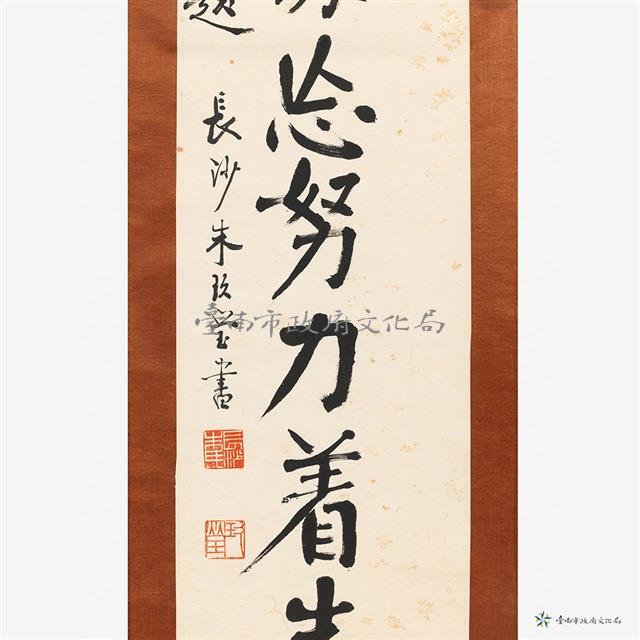 忘努力着先
題
長沙朱玖瑩書
臺南市政府文化局
臺南市政府文化局